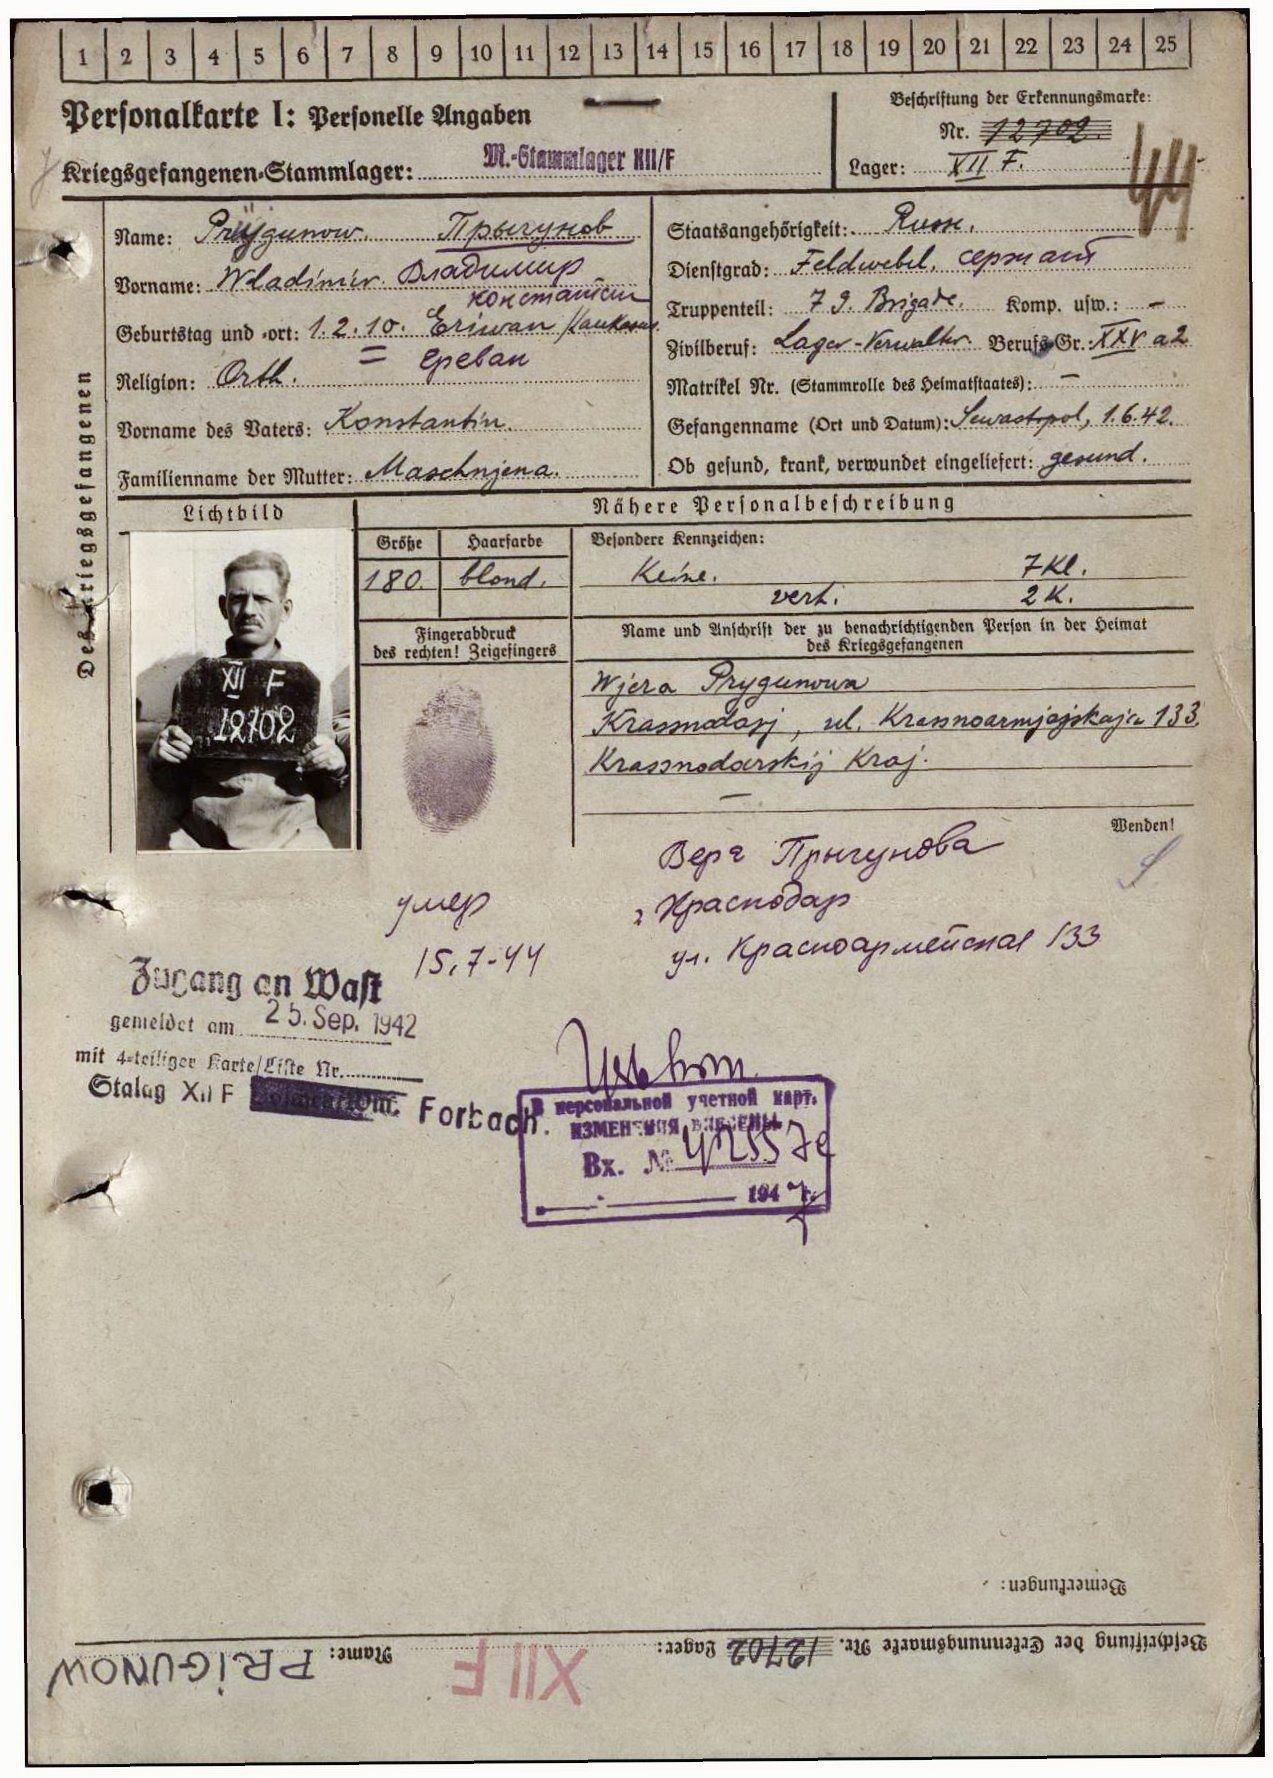 1 2 3 4 5 6 7 8 9 10 11 12 13 14 15 16 17 18 19 20 21 22 23 24 25
Personalkarte I: Personelle Angaben
Kriegsgefangenen-Stammlager: M.-Stammlager XII/F
Beschriftung der Erkennungsmarke:
Nr. 12702.
Lager: XII F.
44
Des Kriegsgefangenen
Name: Prygunow. Прыгунов
Vorname: Wladimir. Владимир
констант
Geburtstag und -ort: 1.2.10. Eriwan /Kaukasus.
= ереван
Religion: Orth.
Vorname des Vaters: Konstantin.
Familienname der Mutter: Maschnjena.
Staatsangehörigkeit: Russe.
Dienstgrad: Feldwebel. сержант
Truppenteil: 79. Brigade. Komp. usw.: –
Zivilberuf: Lager-Verwalter. Berufs-Gr.: XXV a2
Matrikel Nr. (Stammrolle des Heimatstaates): –
Gefangenname (Ort und Datum): Sewastopol, 1.6.42.
Ob gesund, krank, verwundet eingeliefert: gesund.
Lichtbild
XII F
12702
Nähere Personalbeschreibung
Größe Haarfarbe Besondere Kennzeichen:
180. blond. Keine. 7 Kl.
verh. 2 K.
Fingerabdruck
des rechten! Zeigefingers
Name und Anschrift der zu benachrichtigenden Person in der Heimat
des Kriegsgefangenen
Wjera Prygunowa
Krasnodarj, ul. Krassnoarmjejskaja 133.
Krassnodarskij Kraj.
–
Wenden!
Вера Прыгунова
г Краснодар
ул. Красноармейская 133
умер
15.7-44
Zugang an Wast
gemeldet am 25. Sep. 1942
mit 4-teiliger Karte/Liste Nr.
Stalag XII F Forbach.
В персональной учетной карт.
ИЗМЕНЕНИЯ ВНЕСЕНЫ
Вх. №
194 г.
Bemerkungen:
Beschriftung der Erkennungsmarke Nr. 12702 Lager: XII F Name: PRIGUNOW